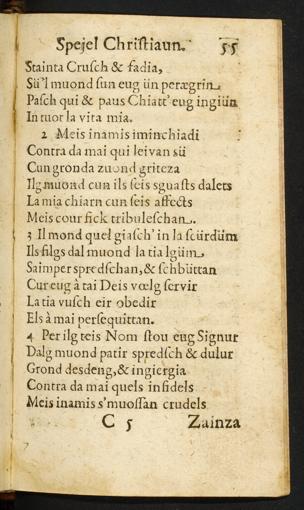 Spejel Chriſtiaun. 55
Stainta Cruſch & fadia,
Sü'l muond ſun eug ün perægrin
Paſch qui & paus Chiatt' eug ingiün
In tuor la vita mia.
2 Meis inamis iminchiadi
Contra da mai qui leivan sü
Cun gronda zuond griteza
Ilg muond cun ils ſeis sguaſts dalets
La mia chiarn cun ſeis affects
Meis cour fick tribuleſchan.
3 Il mond quel giaſch' in la ſcürdüm
Ils filgs dal muond la tia lgüm
Saimper spredſchan, & ſchbüttan
Cur eug à tai Deis vœlg ſervir
La tia vuſch eir obedir
Els à mai perſequittan.
4 Per ilg teis Nom ſtou eug Signur
Dalg muond patir spredſch & dulur
Grond desdeng, & ingiergia
Contra da mai quels infidels
Meis inamis s'muoſſan crudels
C 5 Zainza